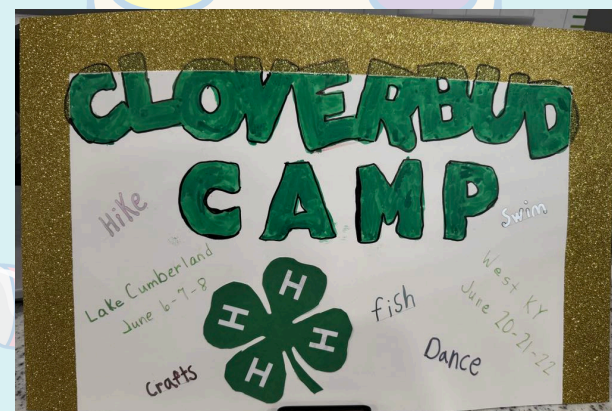 CLOVERBUD
CAMP
HiKe
Swim
Lake Cumberland
June 6-7-8
West KY
June 20-21-22
H
H
H
H
fish
Dance
Crafts